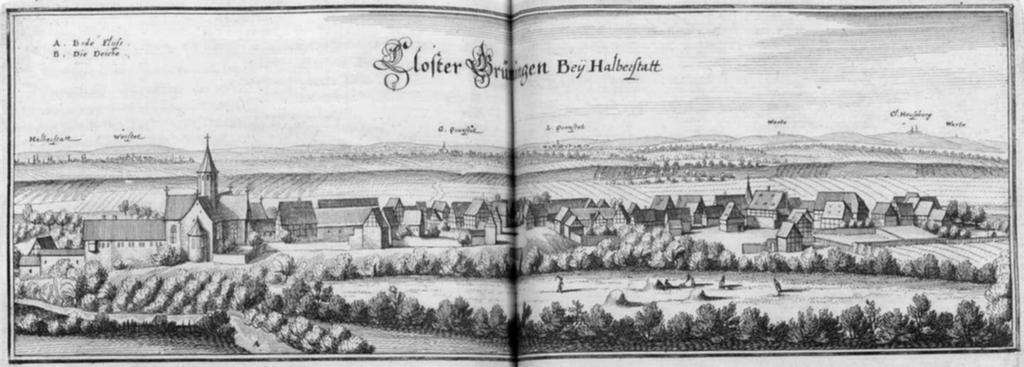 A. Bode Fluss.
B. Die Deiche.
Closter Grüningen Bey Halberstatt
Halberstatt
G. Quenstet
L. Quenstet
Warte
Cl. Heusburg
Warte